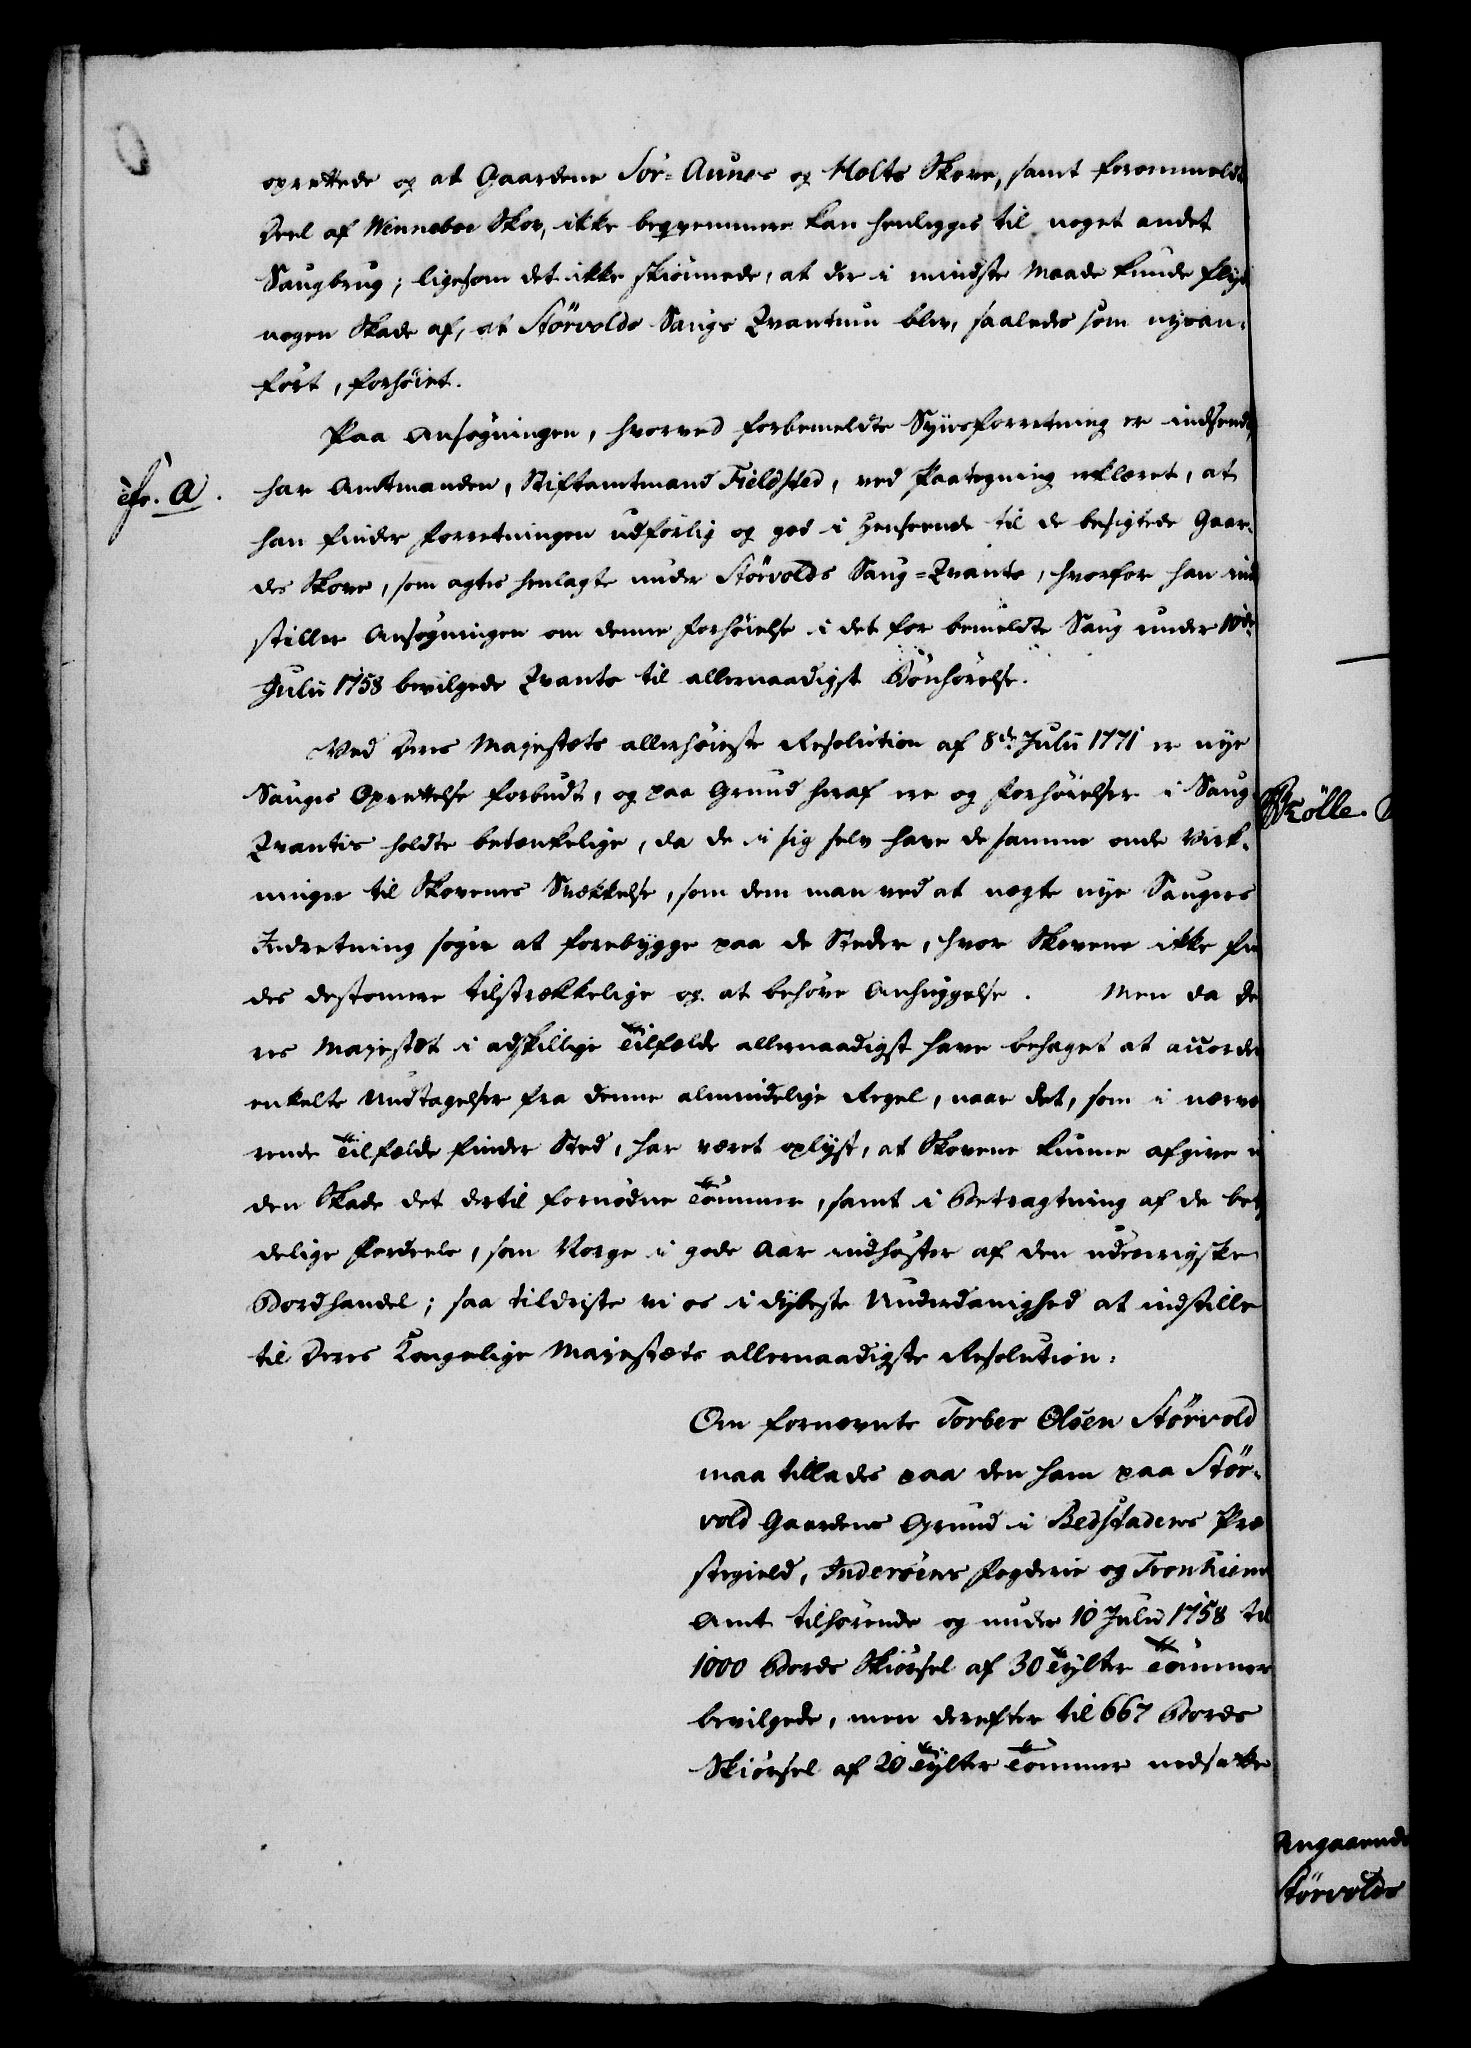 oprettede og at Gaardene Sör-Aunes og Holte Skove, samt forommeldte
Deel af Winneboe Skov, ikke beqvemmere kan henlegges til noget andet
Saugbrug; ligesom det ikke skiönnede, at der i mindste Maade kunde flyde
nogen Skade af, at Störvolds Saugs Qvantum blev, saaledes som nysan-
fört, forhöiet.
Paa Ansögningen, hvorved forbemeldte Synsforretning er indsendt,
cfr. A.
har Amtmanden, Stiftamtmand Fieldsted, ved Paategning erklæret, at
han finder Forretningen udförlig og god i Henseende til de besigtede Gaar-
des Skove, som agtes henlagte under Störvolds Saug-Qvanto, hvorfor han ind
stiller Ansögningen om denne Forhöielse i det for bemeldte Saug under 10de
Julii 1758 bevilgede Qvanto til allernaadigst Bönhörelse.
Ved Deres Majestæts allerhöieste Resolution af 8de Julii 1771 er nye
Sauges Oprettelse forbudt, og paa Grund heraf ere og Forhöielser i Saug
Qvantis holdte betænkelige, da de i sig selv have de samme onde Virk-
ninger til Skovenes Svækkelse, som dem man ved at negte nye Sauges
Indretning söger at forebygge paa de Steder, hvor Skovene ikke fin
des destomere tilstrækkelige og at behöve Anhuggelse. Men da De
res Majestæt i adskillige Tilfælde allernaadigst have behaget at accorde
enkelte Undtagelser fra denne almindelige Regel, naar det, som i nærvæ
rende Tilfælde finder Sted, har været oplyst, at Skovene kunne afgive u
den Skade det dertil fornödne Tömmer, samt i Betragtning af de bety
delige Fordeele, som Norge i gode Aar indhöster af den udenrigske
Bordhandel; saa tildriste vi os i dybeste Underdanighed at indstille
til Deres Kongelige Majestæts allernaadigste Resolution:
Om fornævnte Torber Olsen Störvold
maa tillades paa den ham paa Stör-
vold Gaardens Grund i Bedstadens Præ
stegield, Inderöens Fogderie og Tronhiems
Amt tilhörende og under 10 Julii 1758 til
1000 Bords Skiörsel af 30 Tylter Tömmer
bevilgede, men derefter til 667 Bords
Skiörsel af 20 Tylter Tömmer nedsatte
Angaaende
Störvolds